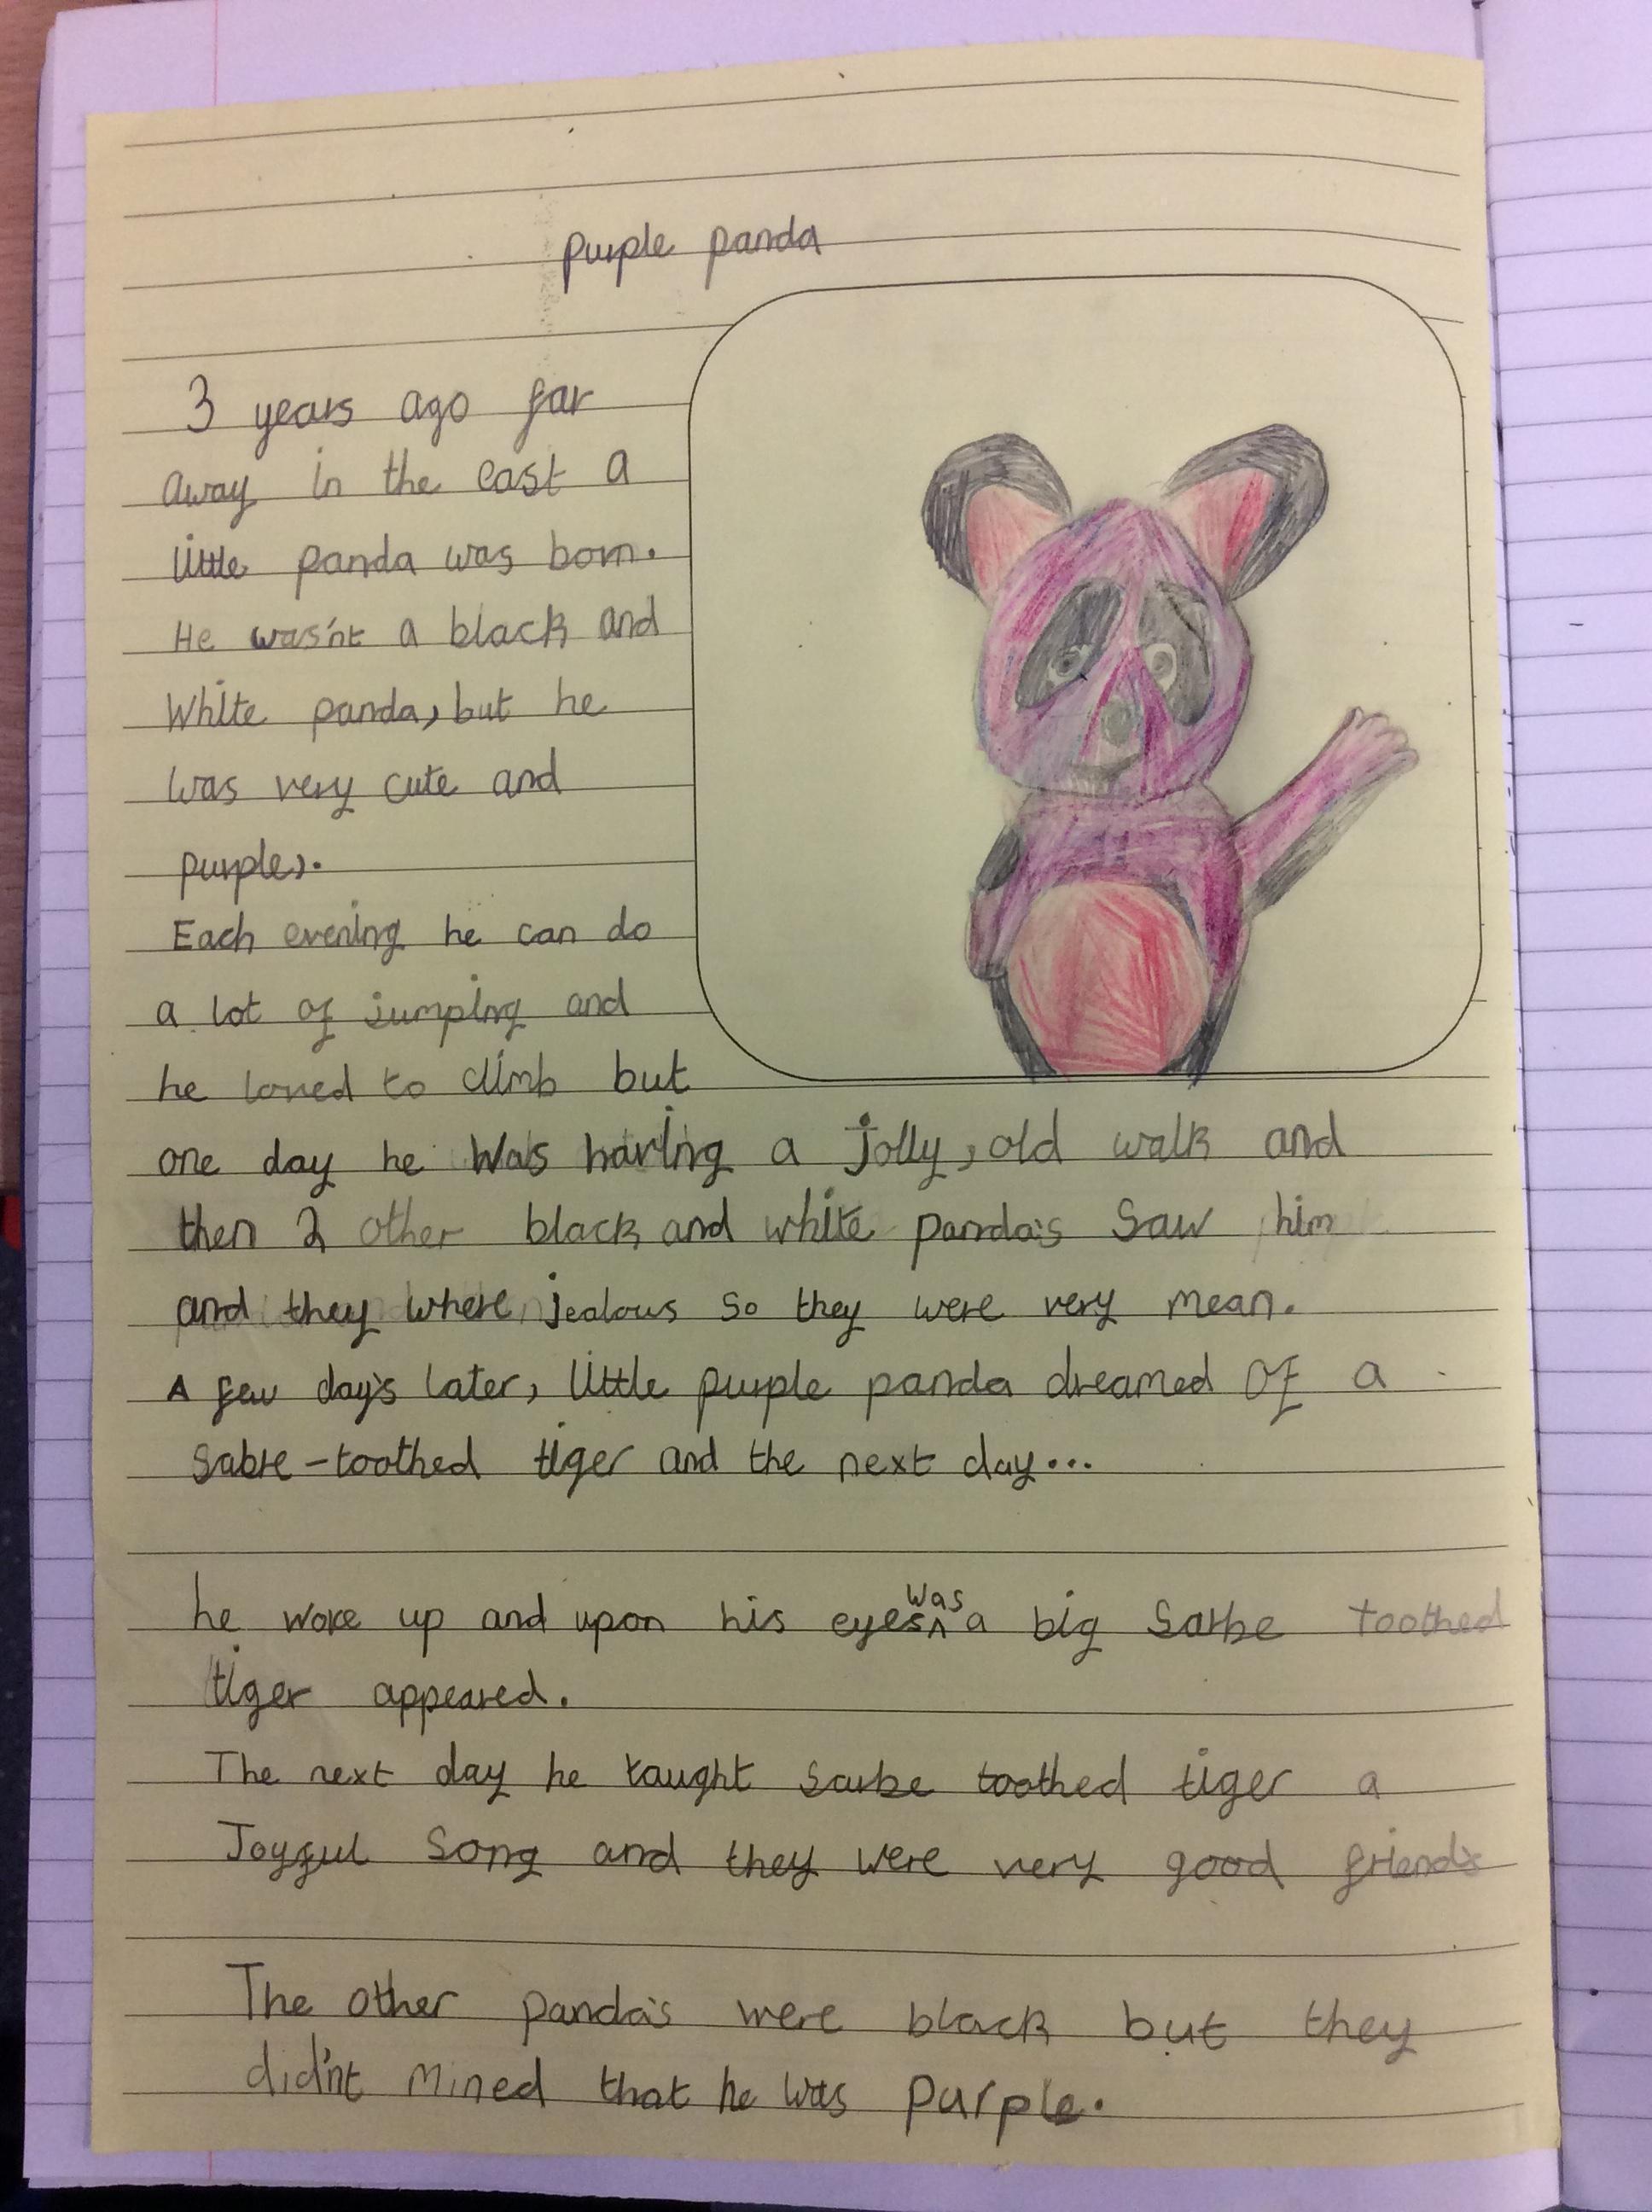 purple panda
3 years ago far
away in the east a
little panda was born.
He was'nt a black and
White panda, but he
was very cute and
purple,.
Each evening he can do
a lot of jumping and
he loved to climb but
one day he was having a jolly, old walk and
then 2 other black and white panda's saw him
and they where jealous so they were very mean.
A few day's later, little purple panda dreamed of a
sabre-toothed tiger and the next day...
he woke up and upon his eyes was a big sarbe toothed
tiger appeared.
The next day he taught sarbe toothed tiger a
Joyful song and they were very good friends
The other panda's were black but they
did'nt mined that he was purple.